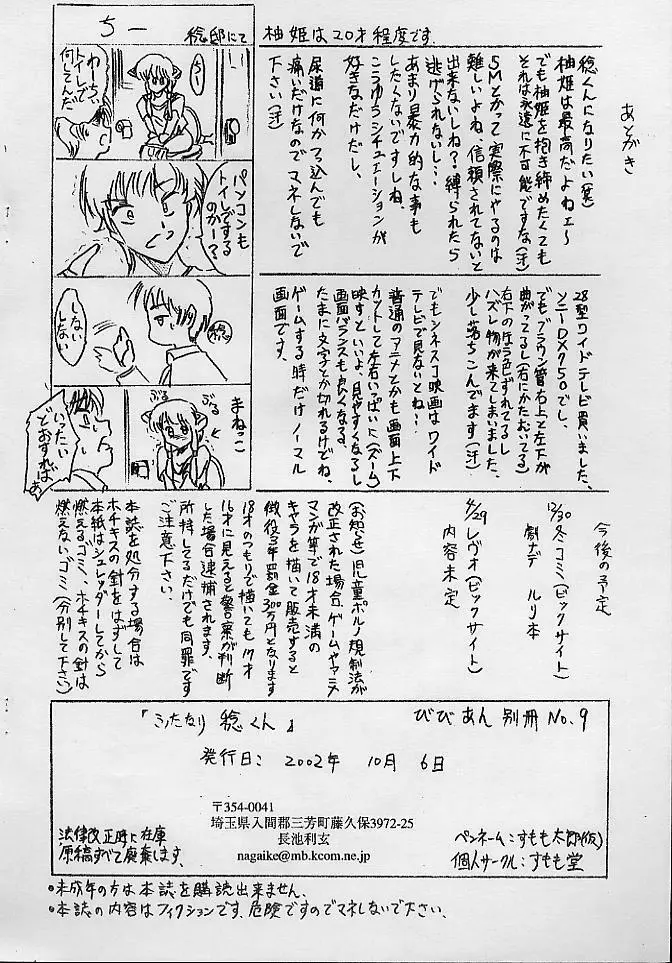 あとがき
稔くんになりたい(笑)
柚姫は最高だよねェ～
でも柚姫を抱き締めたくても
それは永遠に不可能ですな(汗)
SMとかって実際にやるのは
難しいよね、信頼されてないと
出来ないしね？縛られたら
逃げられないし…
あまり暴力的な事も
したくないですしね、
こうゆうシチュエーションが
好きなだけだし、
尿道に何かつっ込んでも
痛いだけなのでマネしないで
下さい(汗)
柚姫は20才程度です.
稔邸にて
ちー
ちぃ
わーちぃ
トイレで
何してんだ
パソコンも
トイレするの
かー？
稔
しない
しない
まねっこ
ぷる
ぷる
いったい
どおすれば
あ
28型ワイドテレビ買いました、
ソニーDX750でし、
でもブラウン管右上と左下が
曲がってるし(右にかたむいてる)
右下の方ラ色ずれてるし
ハズレ物が来てしまいました、
少し落ちこんでます(汗)
でもシネスコ映画はワイド
テレビで見ないとね！
普通のアニメとかも画面上下
カットして左右いっぱいに(ズーム)
映すといいよ、見やすくなるし
画面バランスも良くなる、
たまに文字とか切れるけどね、
ゲームする時だけノーマル
画面です、
今後の予定
12/30冬コミ(ビックサイト)
劇ナデ ルリ本
4/29レヴォ(ビックサイト)
内容未定
(お知らせ)児童ポルノ規制法が
改正された場合、ゲームやアニメ
マンガ等で18才未満の
キャラを描いて販売すると
懲役3年罰金300万円となります
18才のつもりで描いても17才
16才に見えると警察が判断
した場合逮捕されます.
所持してるだけでも同罪です
ご注意下さい、
本誌を処分する場合は
ホチキスの針をはずして
本紙はシュレッダーしてから
燃えるゴミ、ホチキスの針は
燃えないゴミ(分別して下さい)
『ふたなり 稔くん』
びびあん 別冊 No.9
発行日： 2002年 10月 6日
〒354-0041
埼玉県入間郡三芳町藤久保3972-25
長池利玄
nagaike@mb.kcom.ne.jp
法律改正時に在庫
原稿すべて廃棄します.
ペンネーム：すもも太郎(仮)
個人サークル：すもも堂
•未成年の方は本誌を購読出来ません.
•本誌の内容はフィクションです、危険ですのでマネしないで下さい.